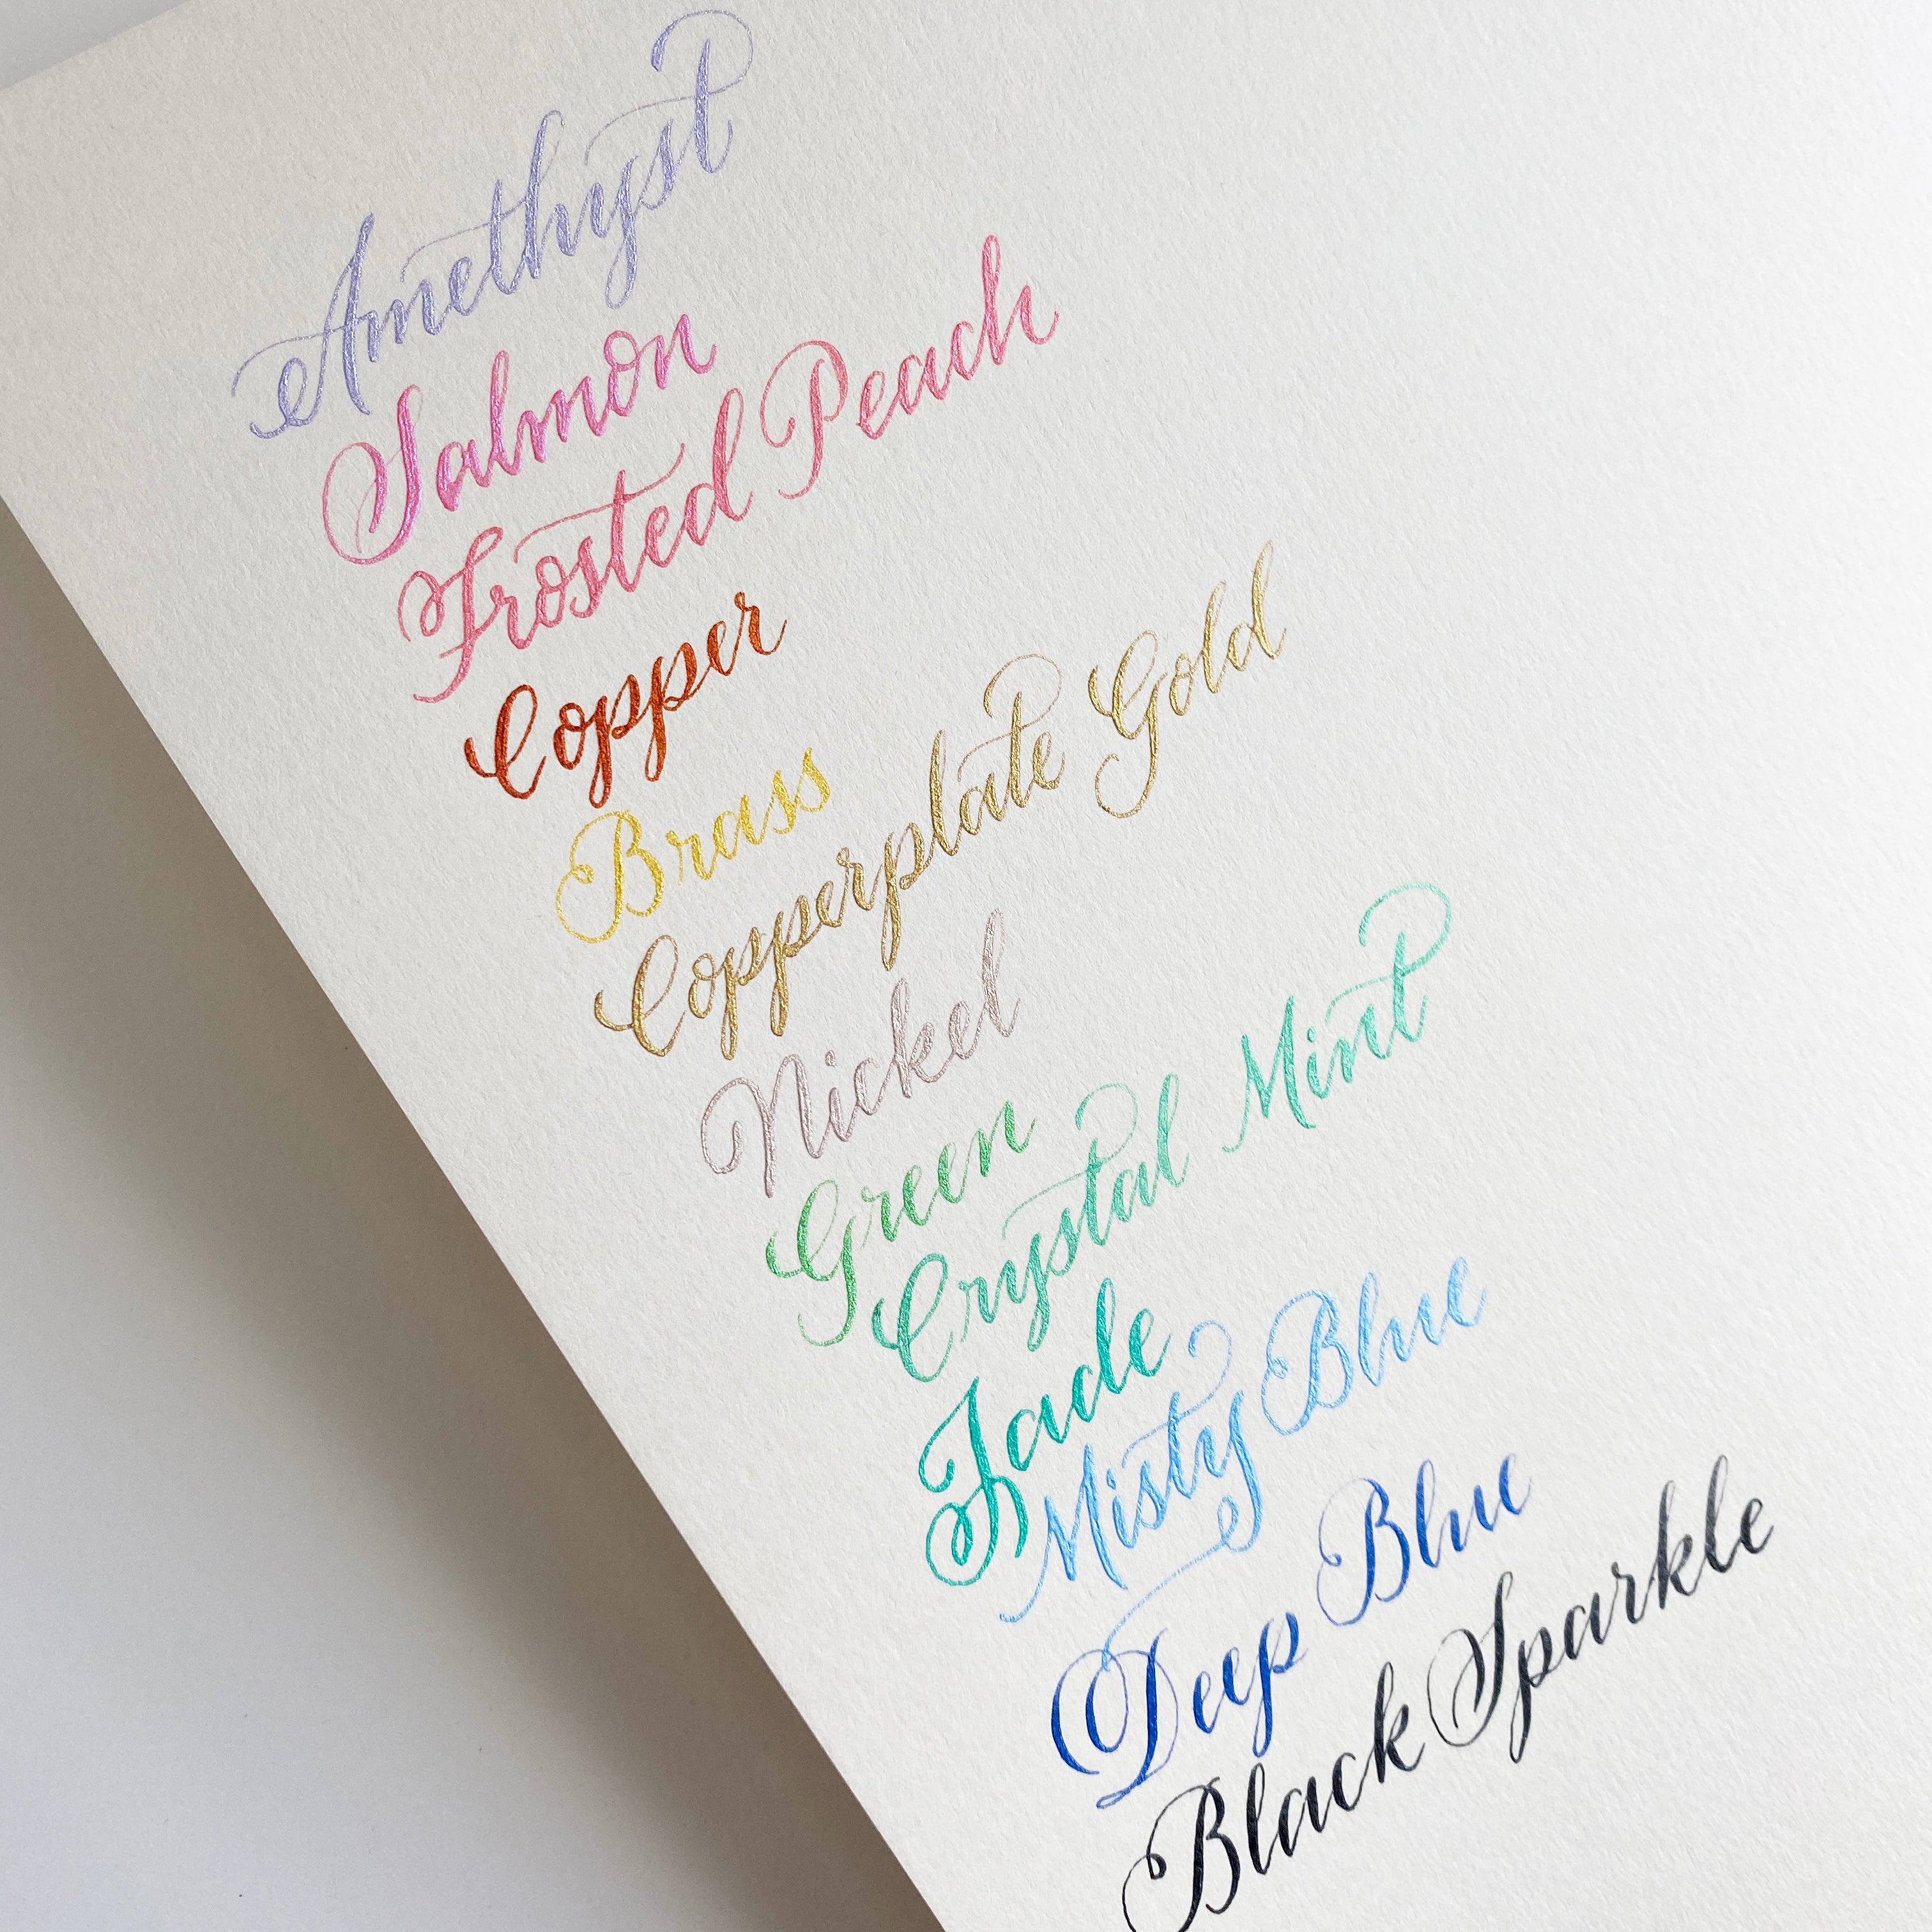 Amethyst
Salmon
Frosted Peach
Copper
Brass
Copperplate Gold
Nickel
Green
Crystal Mint
Jade
Misty Blue
Deep Blue
Black Sparkle